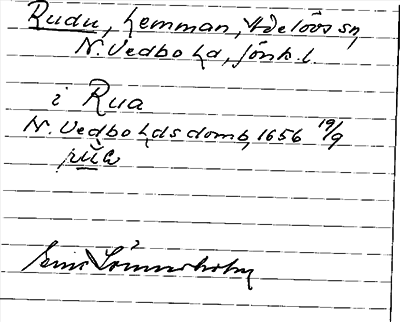 Rudu, hemman, Adelövs sn,
N. Vedbo hd, Jönk. l.
i Rua
N. Vedbo hds domb, 1656 19/9
rūa